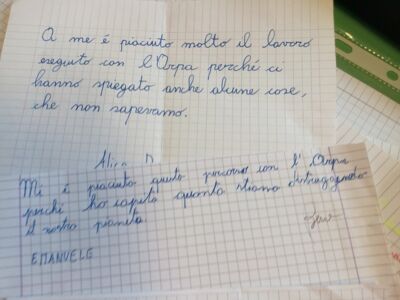 A me è piaciuto molto il lavoro
eseguito con l'Orpa perché ci
hanno spiegato anche alcune cose,
che non sapevamo.
Alice D
Mi è piaciuto questo percorso con l'Orpa
perché ho capito quanto stiamo distruggendo
il nostro pianeta.
EMANUELE